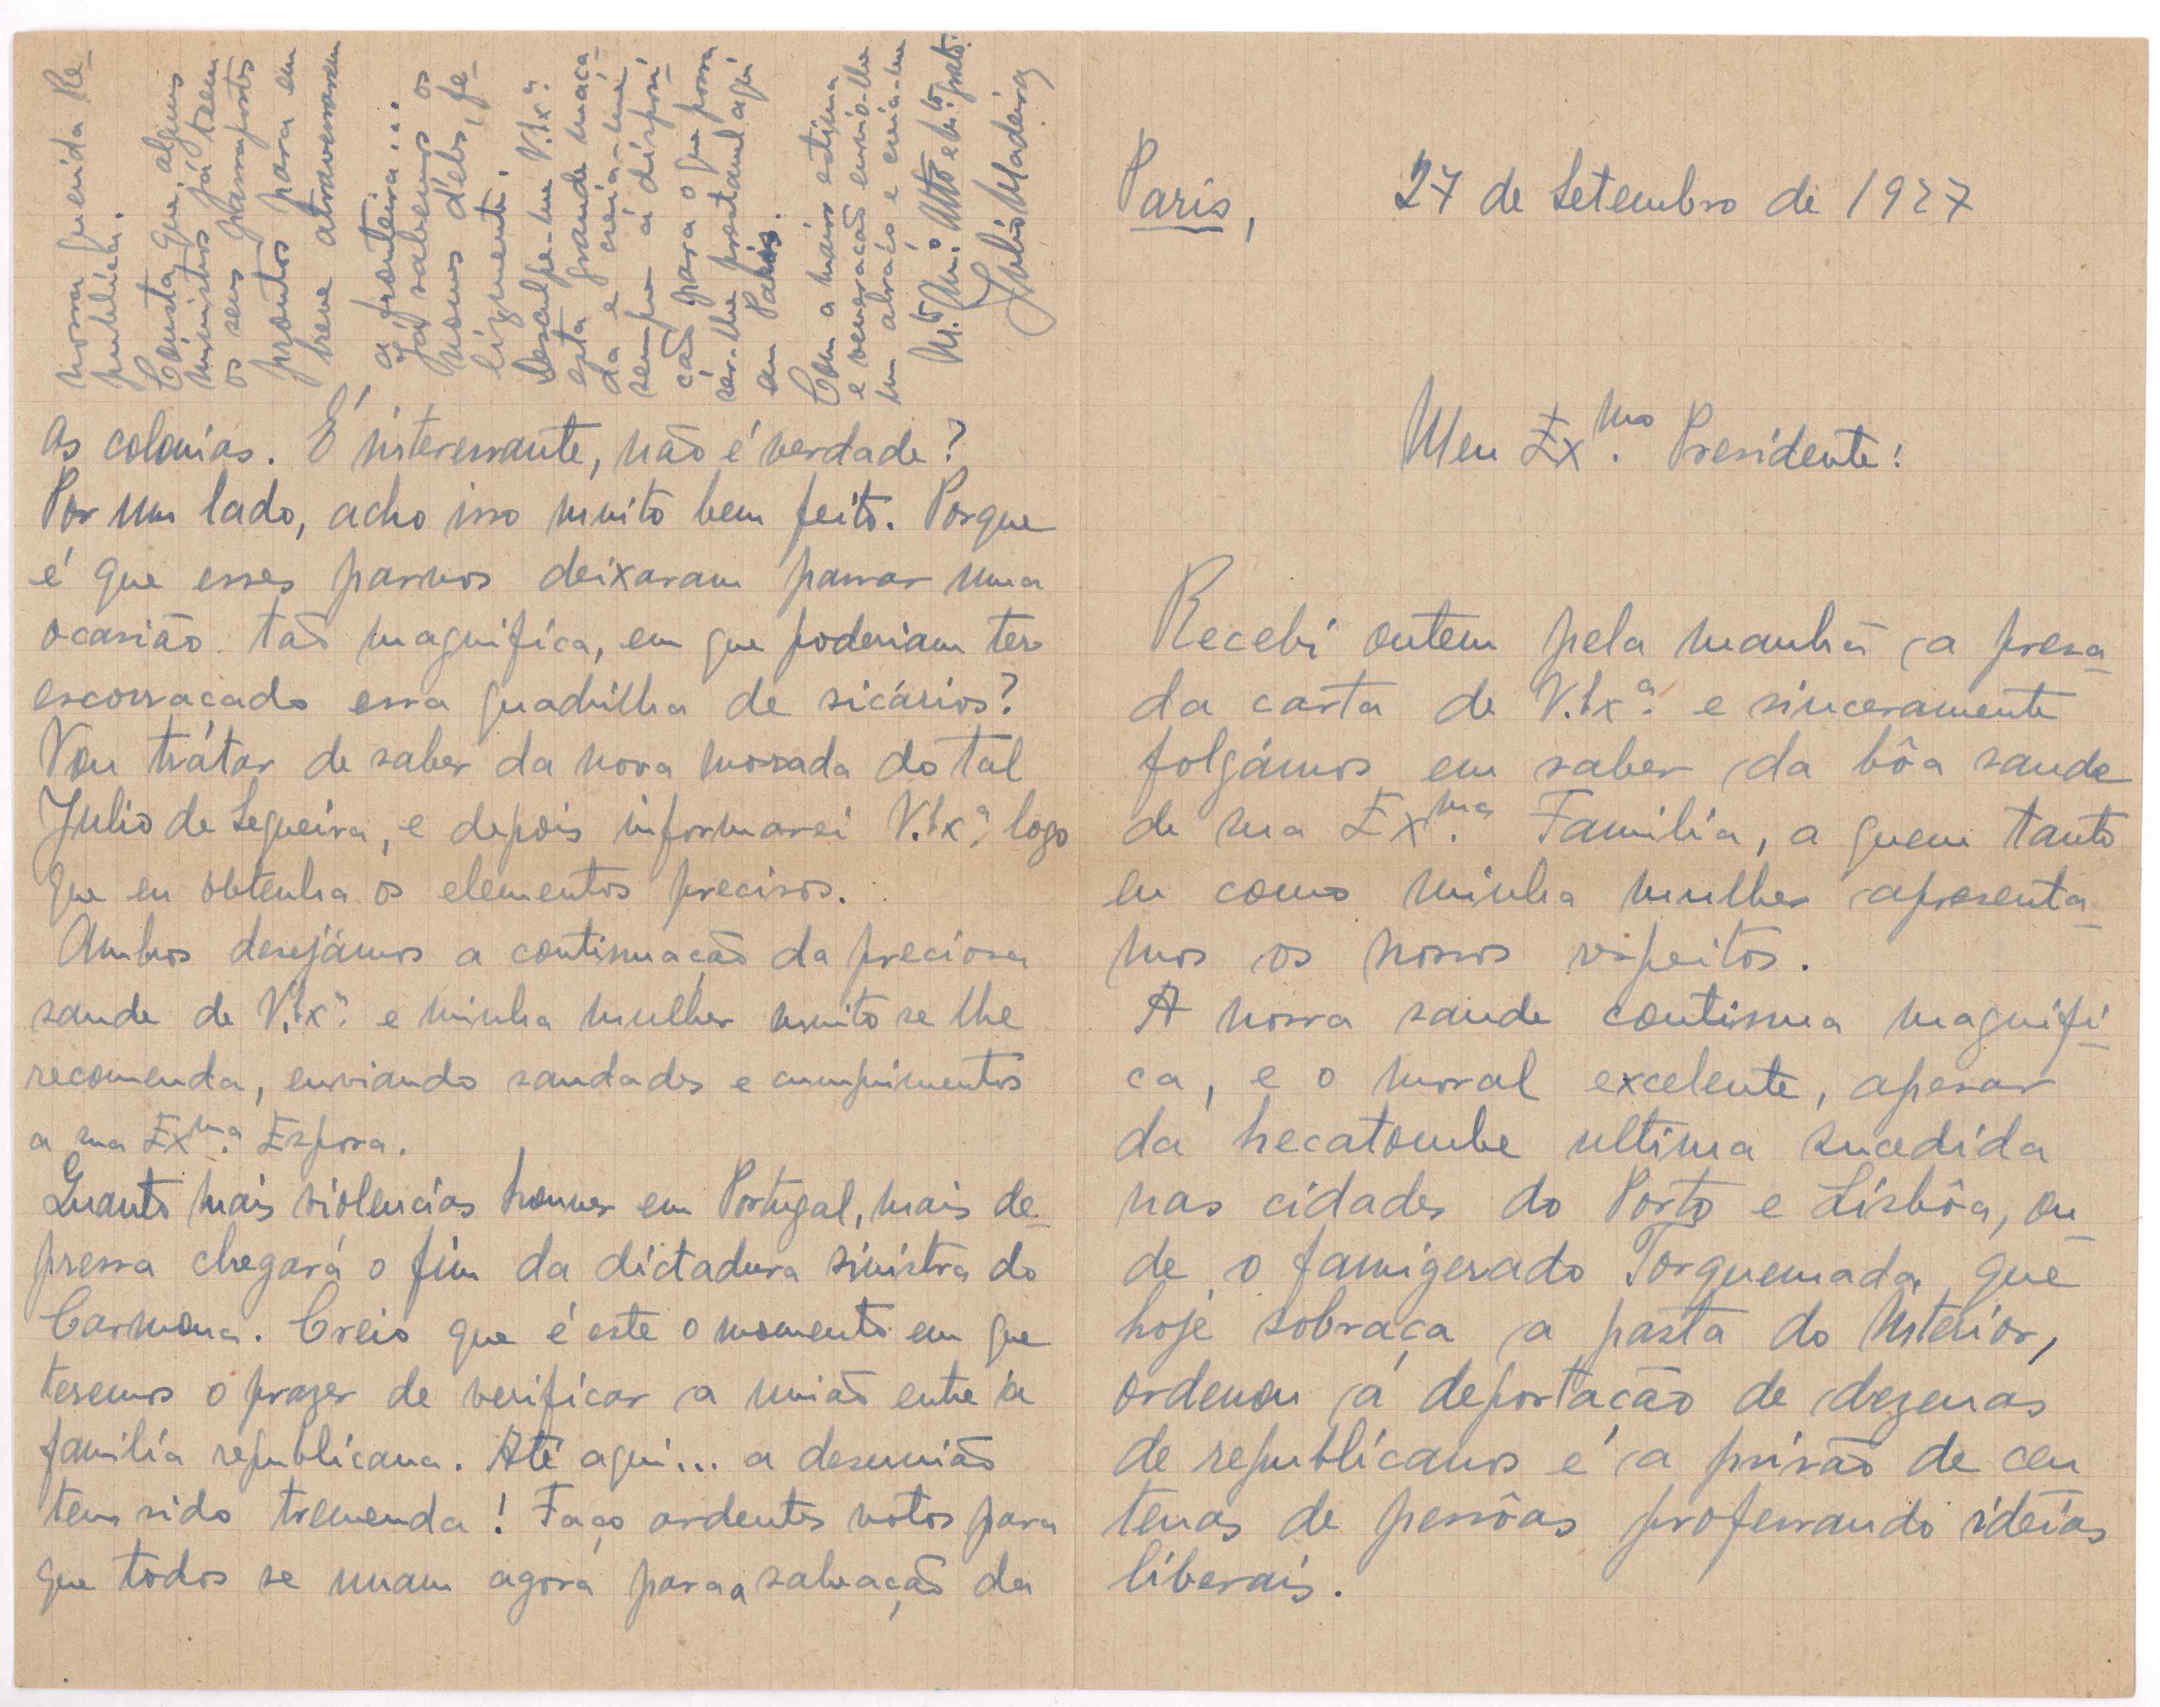 Paris, 27 de Setembro de 1927
Meu Ex.mo Presidente:
Recebi ontem pela manhã a presa-
da carta de V. Ex.ª e sinceramente
folgámos em saber da bôa saude
de sua Ex.ma Familia, a quem tanto
eu como minha mulher apresenta-
mos os nossos respeitos.
A nossa saude continua magnifi-
ca, e o moral excelente, apesar
da hecatombe ultima sucedida
nas cidades do Porto e Lisbôa, on-
de o famigerado Torquemada que
hoje sobraça a pasta do Interior,
ordenou a deportação de dezenas
de republicanos e a prisão de cen
tenas de pessôas professando ideias
liberais.
as colonias. É interessante, não é verdade?
Por um lado, acho isso muito bem feito. Porque
é que esses parvos deixaram passar uma
ocasião tão magnifica, em que poderiam ter
escorraçado essa quadrilha de sicários?
Vou tratar de saber da nova morada do tal
Julio de Sequeira, e depois informarei V. Ex.ª, logo
que eu obtenha os elementos precisos.
Ambos desejámos a continuação da preciosa
saude de V. Ex.ª e minha mulher muito se lhe
recomenda, enviando saudades e cumprimentos
a sua Ex.ma Esposa.
Quanto mais violencias houver em Portugal, mais de-
pressa chegará o fim da dictadura sinistra do
Carmona. Creio que é este o momento em que
teremos o prazer de verificar a união entre a
familia republicana. Até aqui... a desunião
tem sido tremenda! Faço ardentes votos para
que todos se unam agora para a salvação da
nossa querida Re-
publica.
Consta que alguns
ministros já teem
os seus passaportes
prontos para em
breve atravessarem
a fronteira...
Já sabemos os
nomes d'eles, fe-
lizmente.
Desculpe-me V. Ex.ª
esta grande maça-
da e creia-me
sempre á disposi-
ção para o que possa
ser-lhe prestavel aqui
em Paris.
Com a maior estima
e veneração envio-lhe
um abraço e creia-me
M.to Am.o Att.o e obrigado
Julio Madeira